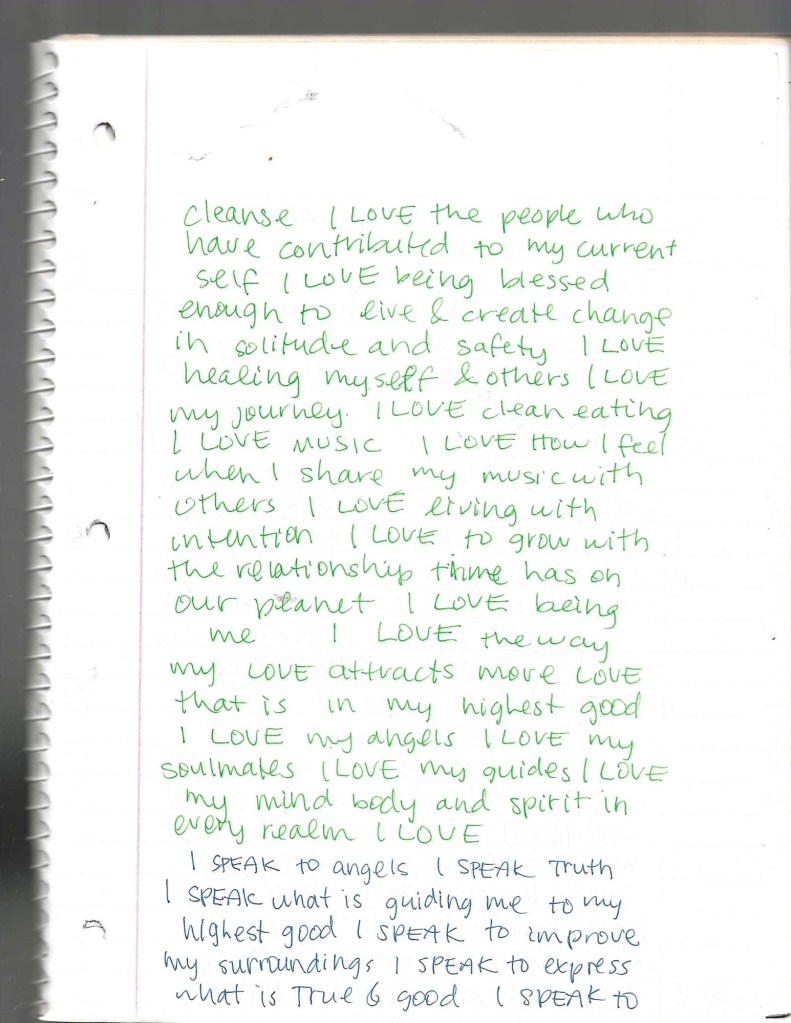 cleanse I LOVE the people who
have contributed to my current
self I LOVE being blessed
enough to live & create change
in solitude and safety I LOVE
healing myself & others I LOVE
my journey. I LOVE clean eating
I LOVE MUSIC I LOVE HOW I feel
when I share my music with
others I LOVE living with
intention I LOVE to grow with
the relationship time has on
our planet I LOVE being
me I LOVE the way
my LOVE attracts more LOVE
that is in my highest good
I LOVE my angels I LOVE my
soulmates I LOVE my guides I LOVE
my mind body and spirit in
every realm I LOVE
I SPEAK to angels I SPEAK Truth
I SPEAK what is guiding me to my
highest good I SPEAK to improve
my surroundings I SPEAK to express
what is True & good I SPEAK to